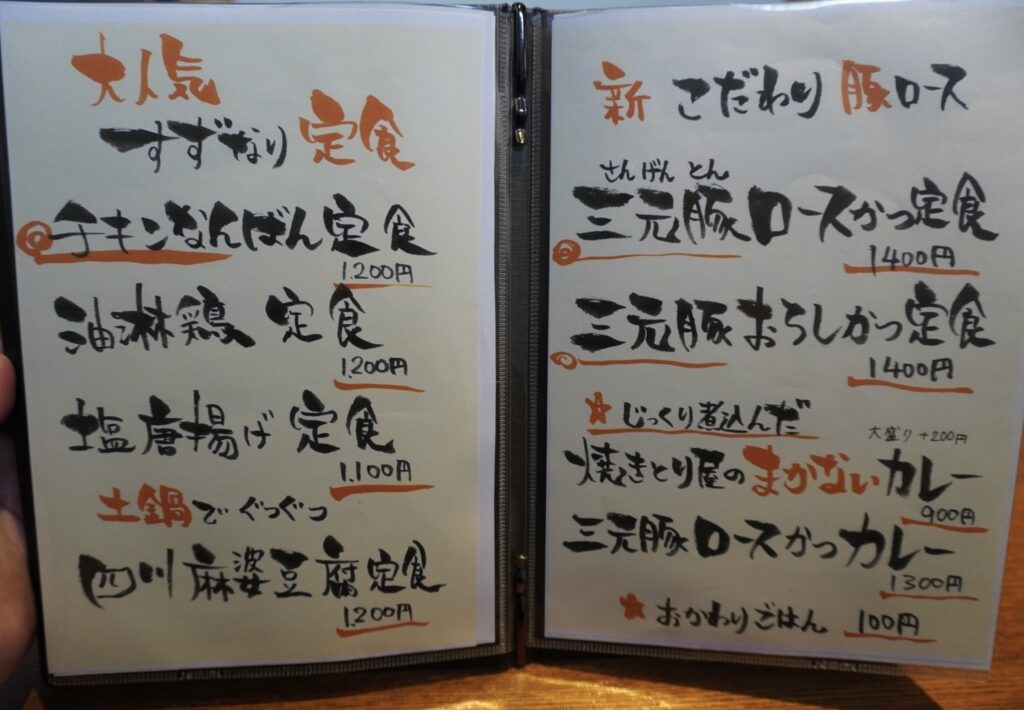 大人気
すずなり定食
チキンなんばん定食
1.200円
油淋鶏 定食
1.200円
塩唐揚げ 定食
1.100円
土鍋でぐつぐつ
四川麻婆豆腐定食
1.200円
新 こだわり 豚ロース
さんげんとん
三元豚ロースかつ定食
1400円
三元豚おろしかつ定食
1400円
じっくり煮込んだ
大盛り+200円
焼きとり屋のまかないカレー
900円
三元豚ロースかつカレー
1300円
おかわりごはん 100円